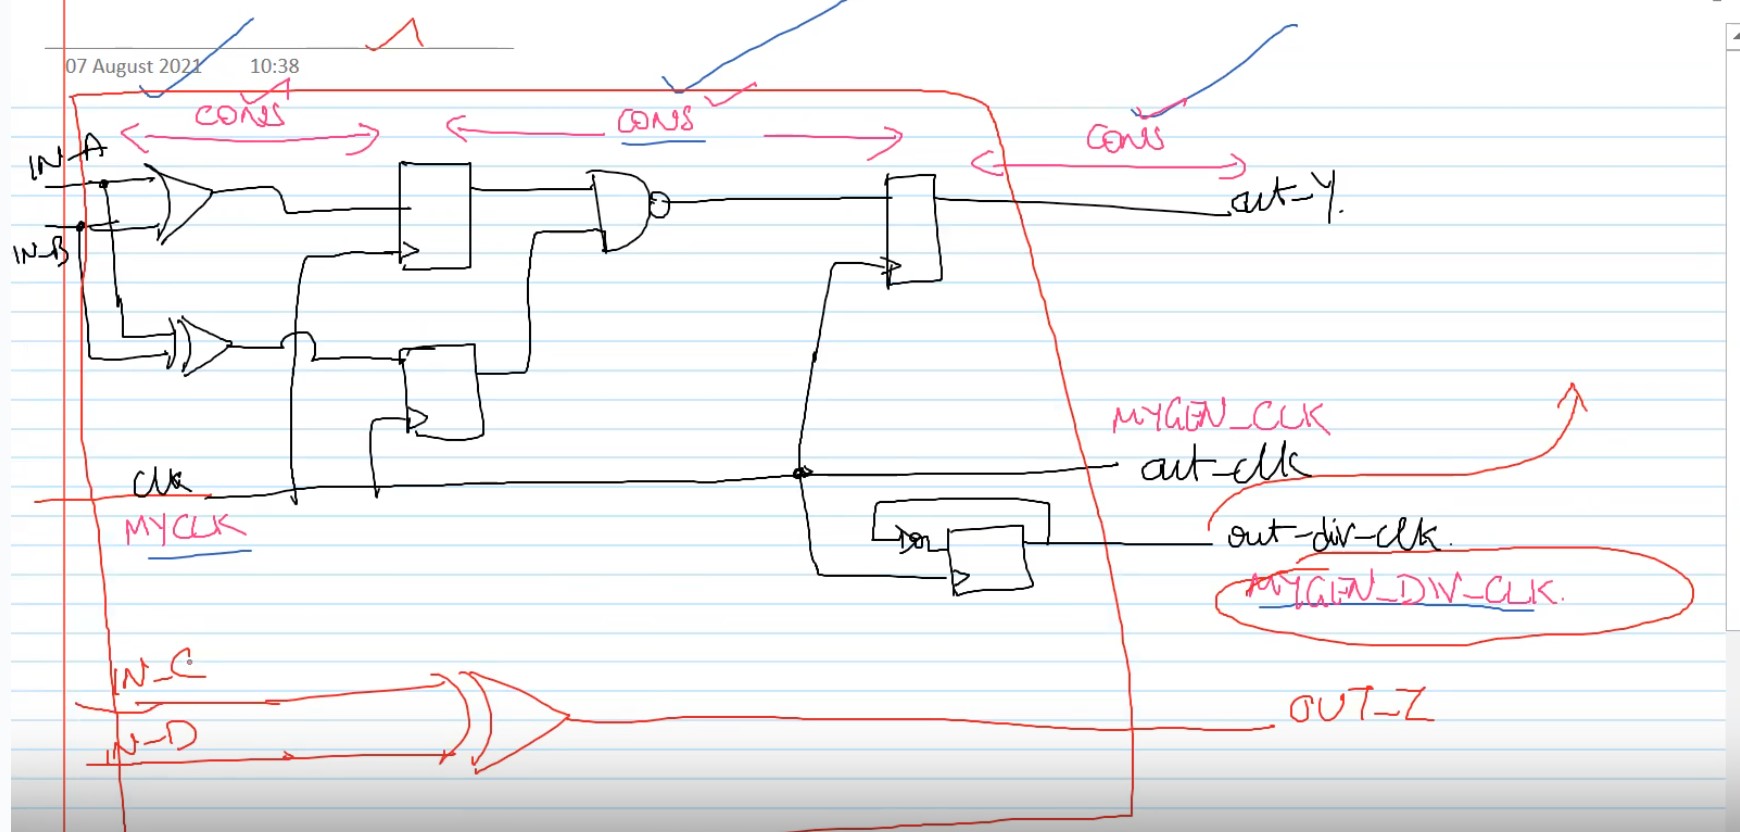 07 August 2021 10:38
CONS CONS CONS
IN_A
out_Y.
IN_B
MYGEN_CLK
out_clk
clk
MYCLK
out_div_clk.
MYGEN_DIV_CLK.
IN_C
OUT_Z
IN_D